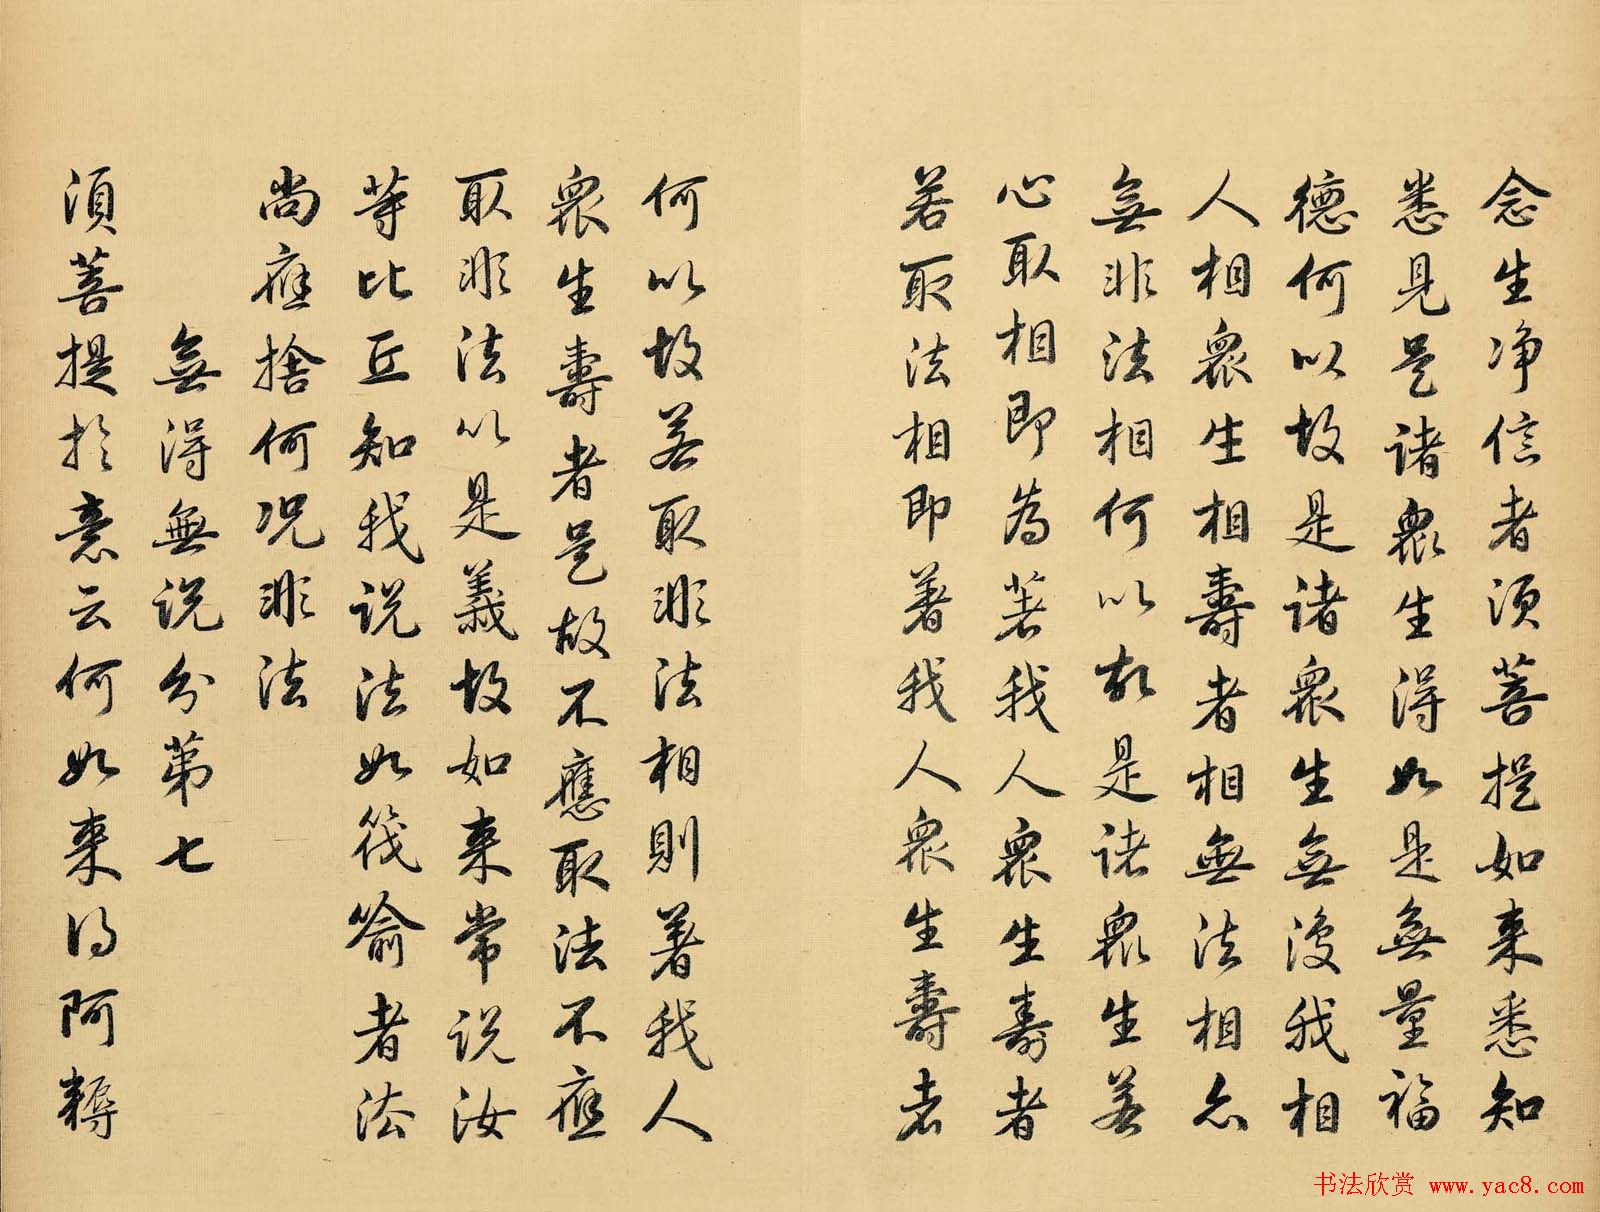 念生净信者須菩提如来悉知
悉見是諸衆生得如是無量福
德何以故是諸衆生無復我相
人相衆生相壽者相無法相亦
無非法相何以故是諸衆生若
心取相即為著我人衆生壽者
若取法相即著我人衆生壽者
何以故若取非法相則著我人
衆生壽者是故不應取法不應
取非法以是義故如来常説汝
等比丘知我説法如筏喻者法
尚應捨何况非法
無得無説分第七
須菩提於意云何如来得阿耨
书法欣赏 www.yac8.com